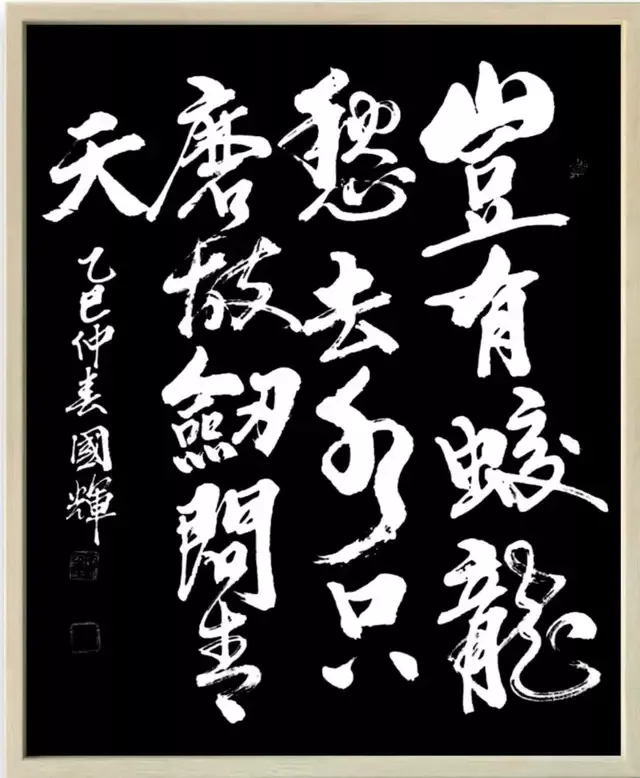 豈有蛟龍
愁去水只
磨故劒問青
天
乙巳仲春國輝